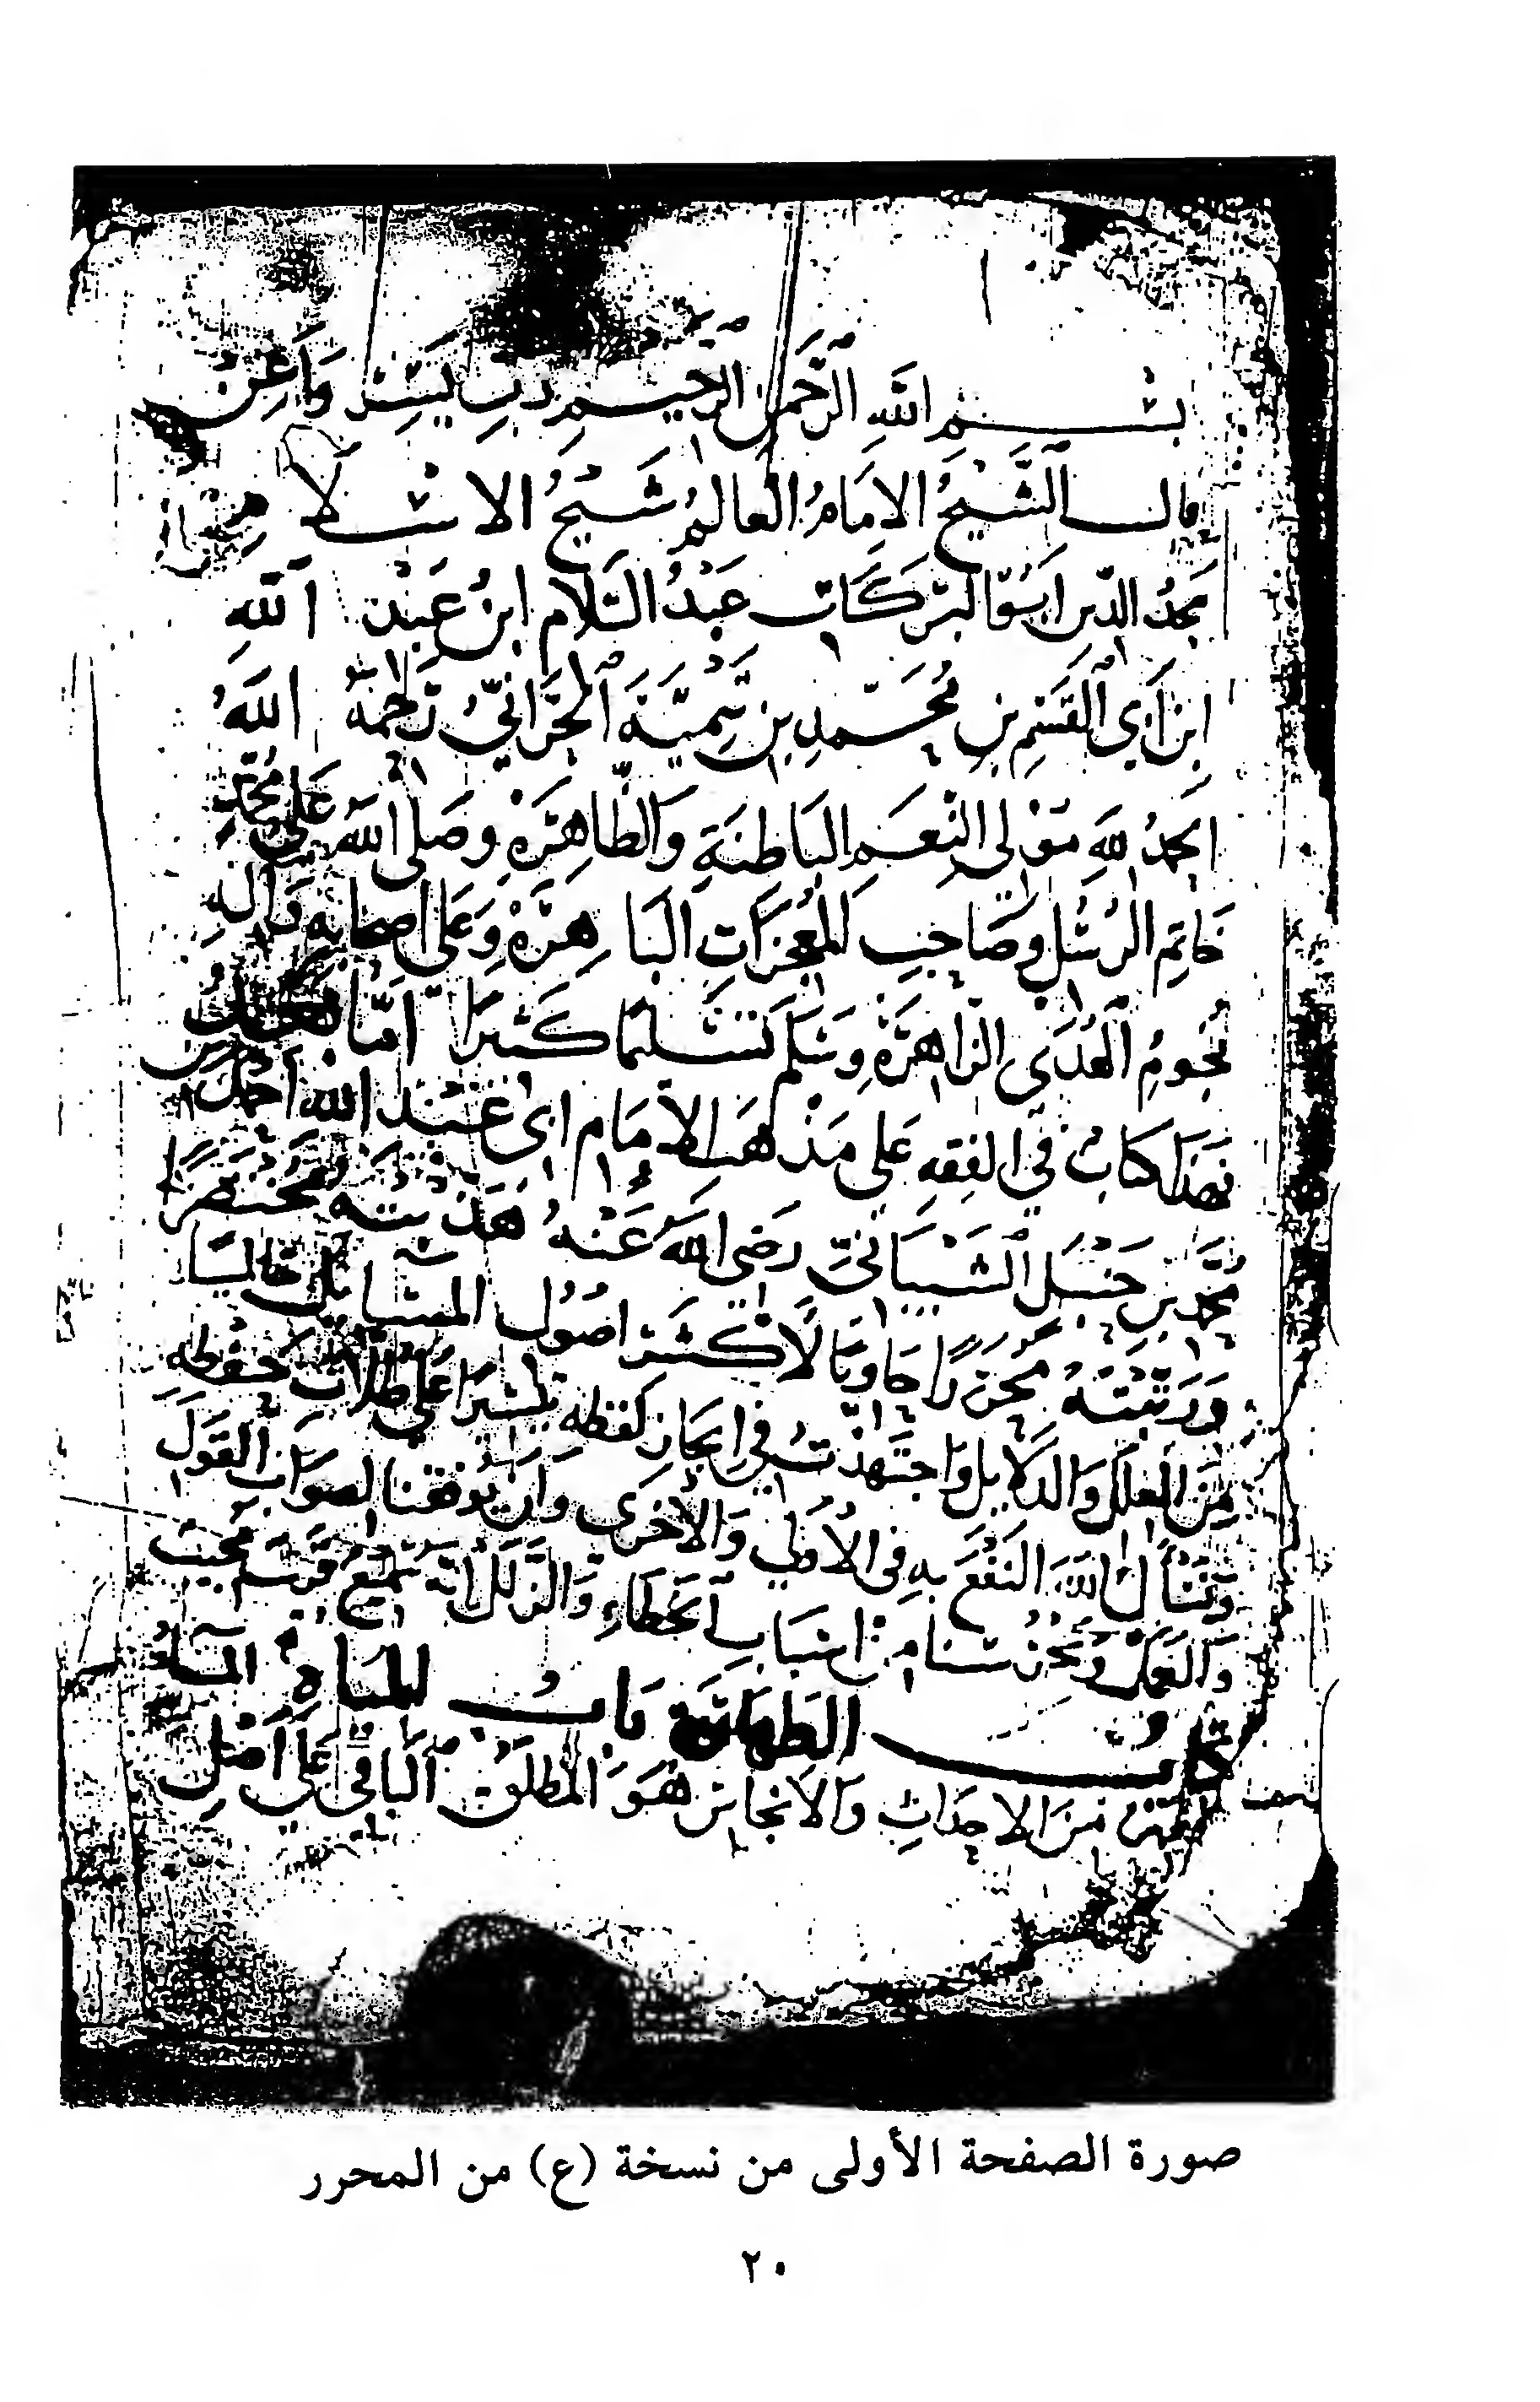 بسم الله الرحمن الرحيم رب يسر وأعن
قال الشيخ الامام العالم شيخ الاسلام
مجد الدين ابو البركات عبد السلام ابن عبد الله
ابن أبي القسم بن محمد بن تيمية الحراني رحمه الله
الحمد لله مولي النعم الباطنة والظاهرة وصلى الله على محمد
خاتم الرسل وصاحب المعجزات الباهرة وعلى اصحابه وآله
نجوم الهدى الزاهرة وسلم تسليما كثيرا أما بعد
فهذا كتاب في الفقه على مذهب الامام ابي عبد الله احمد بن
محمد بن حنبل الشيباني رضي الله عنه هذبته مختصرا
ورتبته محررا حاويا لأكثر اصول المسايل خاليا
من العلل والدلايل واجتهدت في ايجاز لفظه تيسيرا على طلاب حفظه
ونسأل الله النفع به في الأولى والأخرى وان يوفقنا لصواب القول
والعمل ويحرسنا من اسباب الخطاء والزلل انه سميع قريب مجيب
كتاب الطهارة باب المياه الماء
المطهر من الاحداث والانجاس هو المطلق الباقي على اصل
صورة الصفحة الأولى من نسخة (ع) من المحرر
٢٠